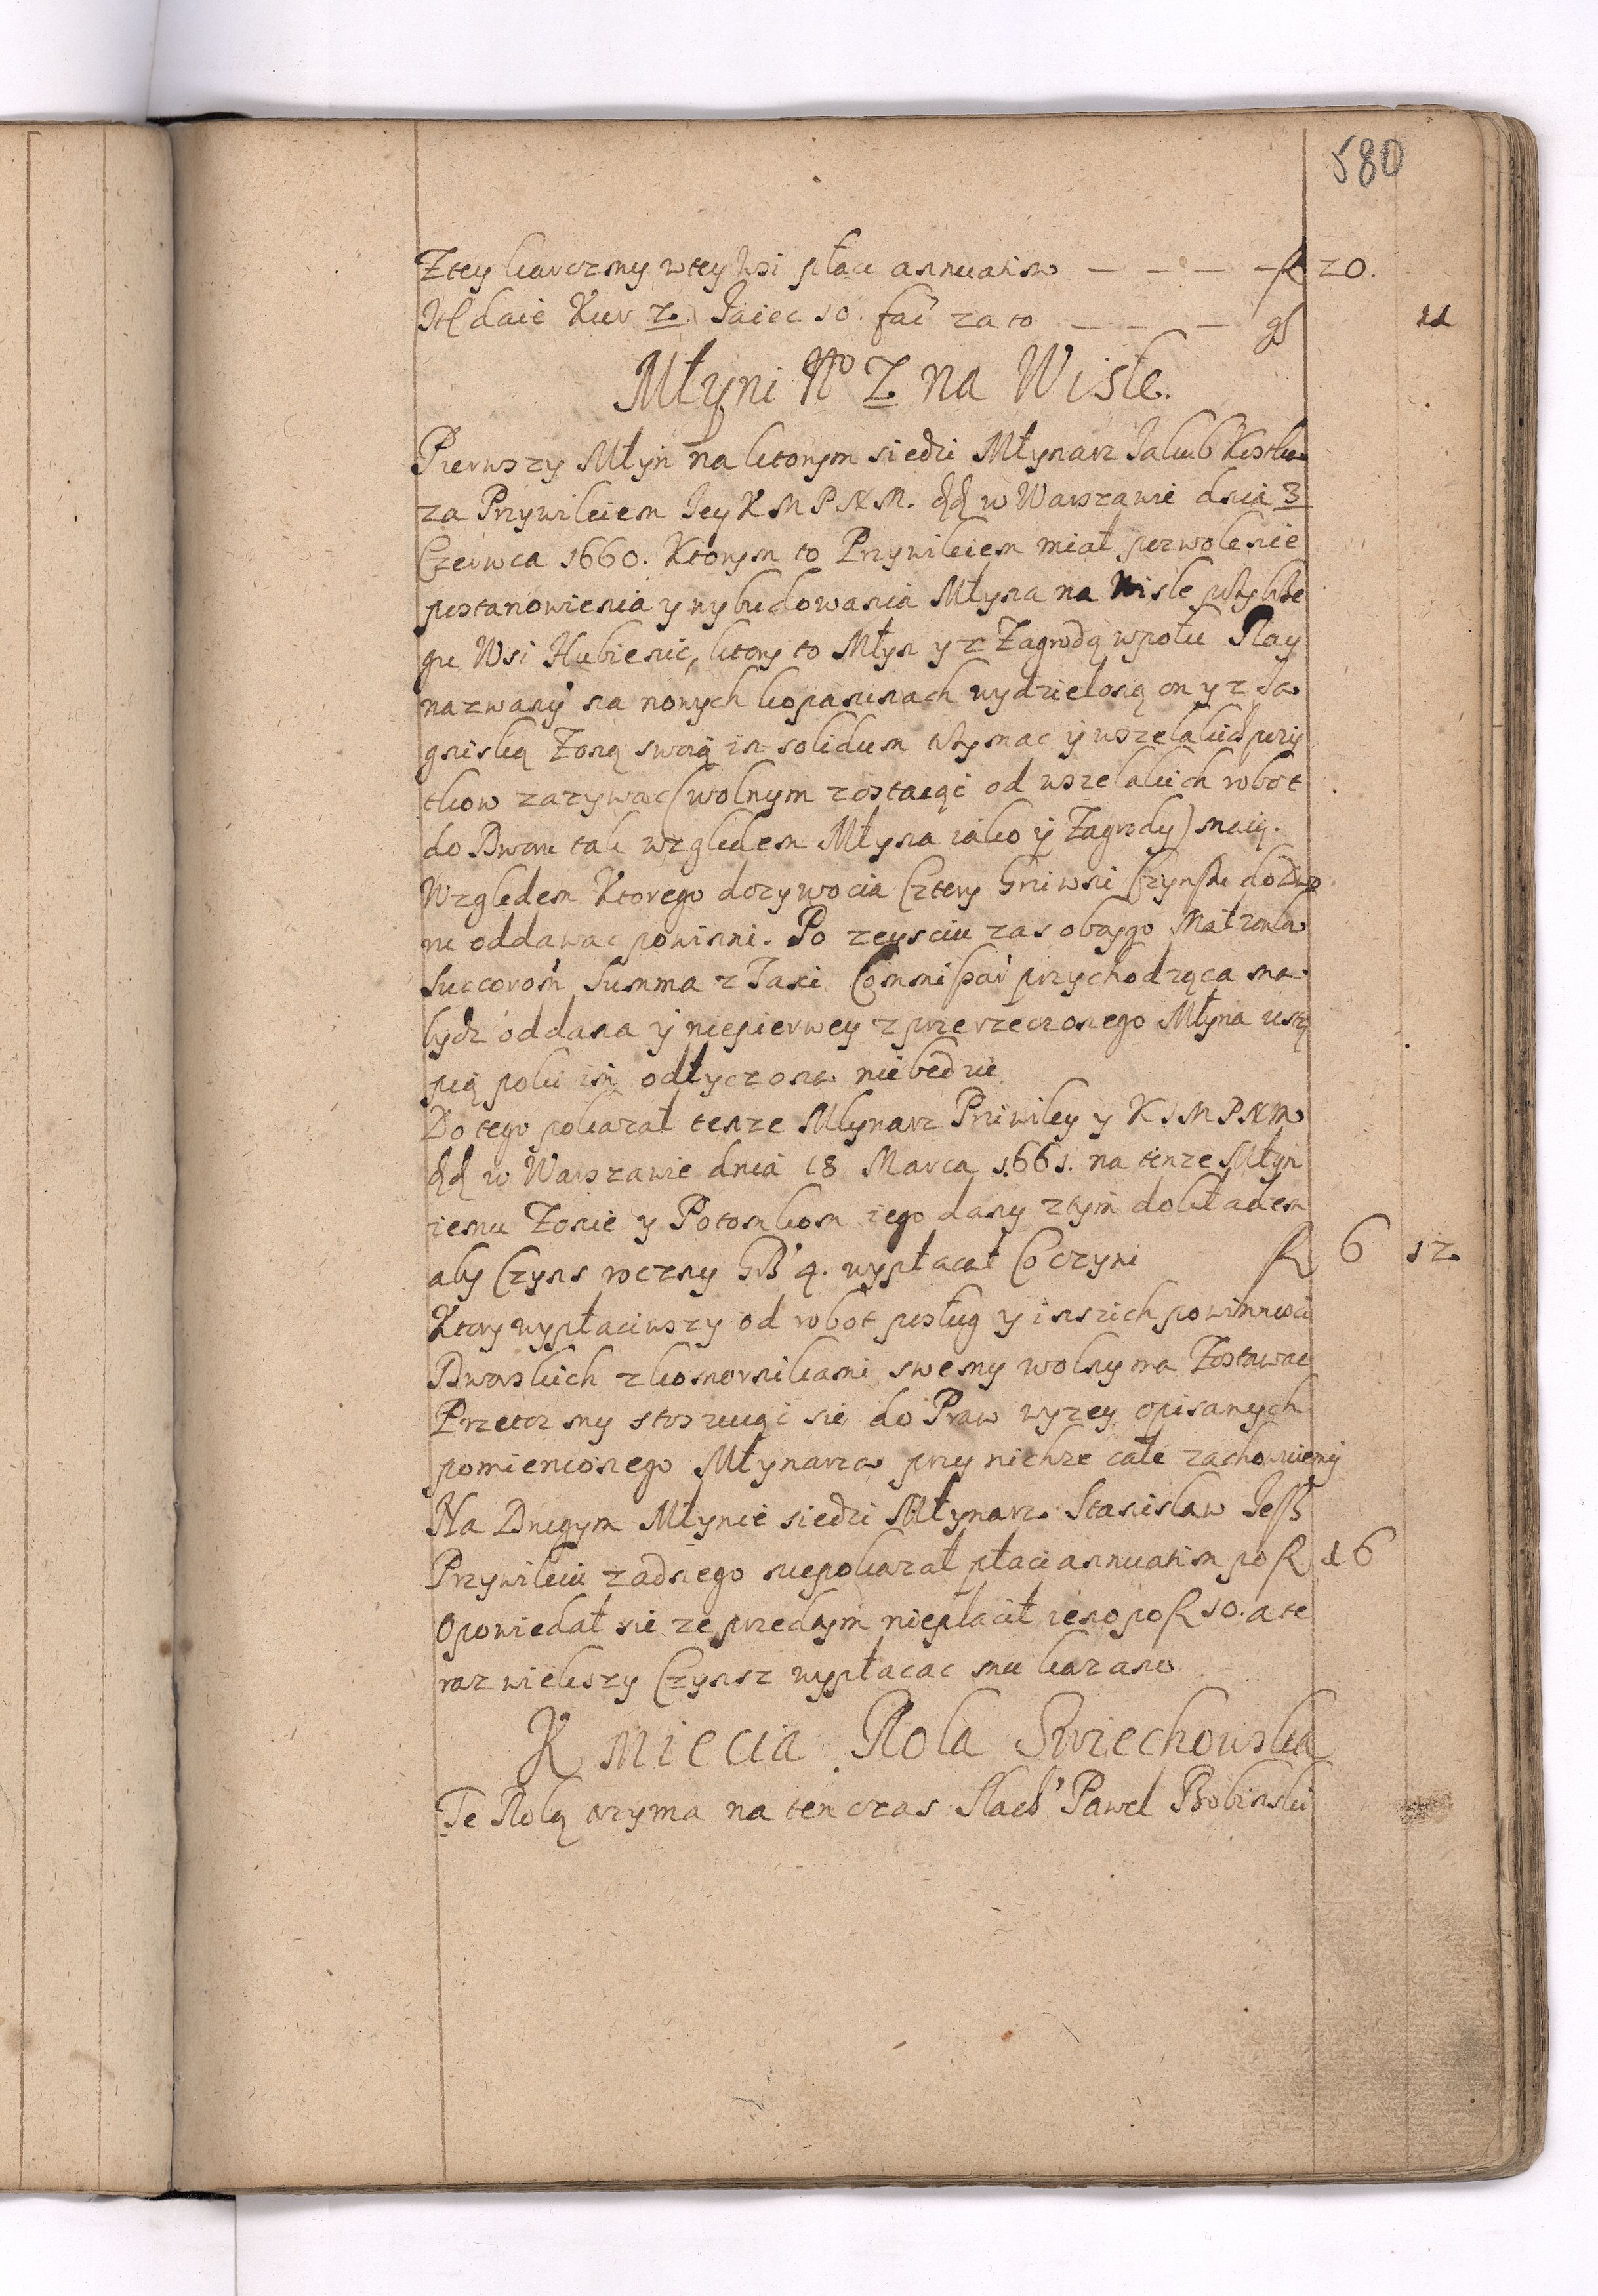 580
Z tey karczmy w tey wsi płaci annuatim — — — — f 20.
Itt daie Kur 2. Jaiec 10. fać za to — — — gs 11
Młyni No 2 na Wisle.
Pierwszy Młyn na ktorym siedzi Młynarz Jakub Kostka
za Przywileiem Jey K M P N M. dd w Warszawie dnia 3
Czerwca 1660. Ktorym to Przywileiem miał pozwolenie
postanowienia y wybudowania Młyna na Wisle przy brze
gu Wsi Hubienic, ktory to Młyn y z Zagrodą wpołu Ray
nazwany na nowych kopaninach wydzieloną on y z Ja
gniską Zoną swoią in solidum trzymac y wszelakich pozy
tkow zazywac (wolnym zostaiąc od wszelakich robot
do Dworu tak względem Młyna iako y Zagrody) maią.
Względem Ktorego dozywocia Cztery Grziwni Czynszu do Dwo
ru oddawac powinni. Po zeysciu zas oboygo Małzonkow
Succorom Summa z Taxi Commissar przychodząca ma
bydz oddana y niepierwey z przerzeczonego Młyna ustą
pią poki im odlyczona niebędzie
Do tego pokazał tenze Młynarz Priwiley y K J M P N M
dd w Warszawie dnia 18 Marca 1661. na tenze Młyn
iemu Zonie y Potomkom iego dany z tym dokładem
aby Czyns roczny GB 4. wypłacał Co czyni f 6 12
Ktory wypłaciwszy od robot posług y inszich powinnosci
Dworskich z komornikami swemy wolny ma Zostawac
Przetoz my stosuiąc się do Praw wyzey opisanych
pomienionego Młynarza przy nichze cale zachowuiemy
Na Drugym Młynie siedzi Młynarz Stanislaw
Przywileiu zadnego niepokazał płaci annuatim po f 16
Opowiedał się ze przedtym niepłacił ieno po f 10. a te
raz wiekszy Czynsz wypłacac mu kazano
Kmiecia Rola Swiechowska
Te Rolą trzyma na ten czas Slach Pawel Bobinski